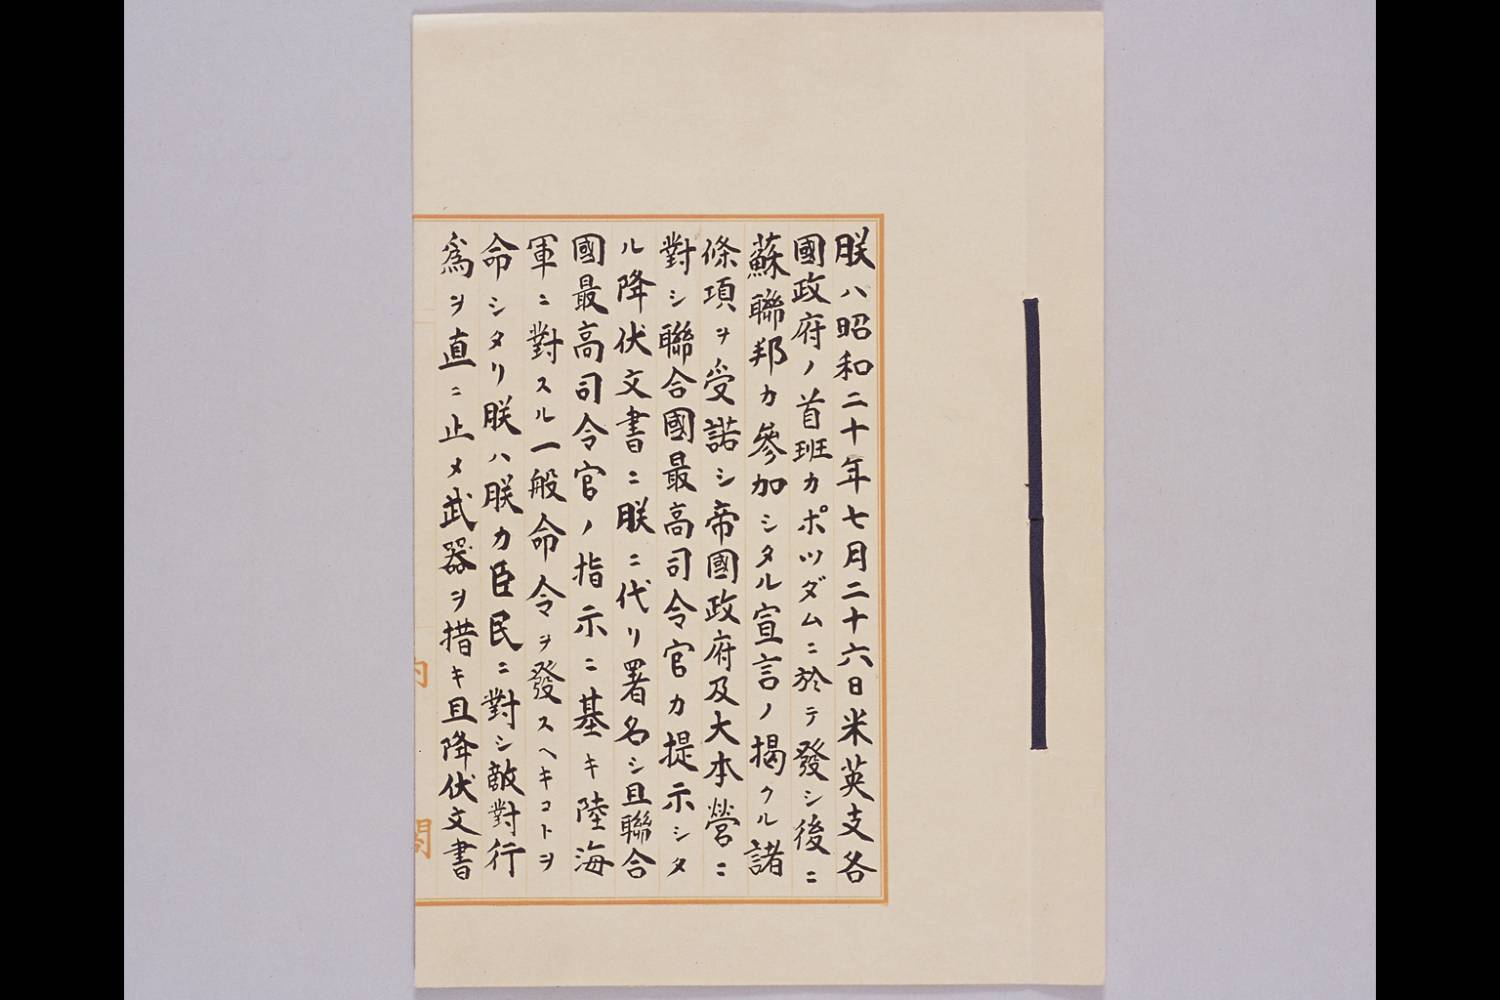 朕ハ昭和二十年七月二十六日米英支各
國政府ノ首班カポツダムニ於テ發シ後ニ
蘇聯邦カ參加シタル宣言ノ揭クル諸
條項ヲ受諾シ帝國政府及大本營ニ
對シ聯合國最高司令官カ提示シタ
ル降伏文書ニ朕ニ代リ署名シ且聯合
國最高司令官ノ指示ニ基キ陸海
軍ニ對スル一般命令ヲ發スヘキコトヲ
命シタリ朕ハ朕カ臣民ニ對シ敵對行
爲ヲ直ニ止メ武器ヲ措キ且降伏文書
內
閣